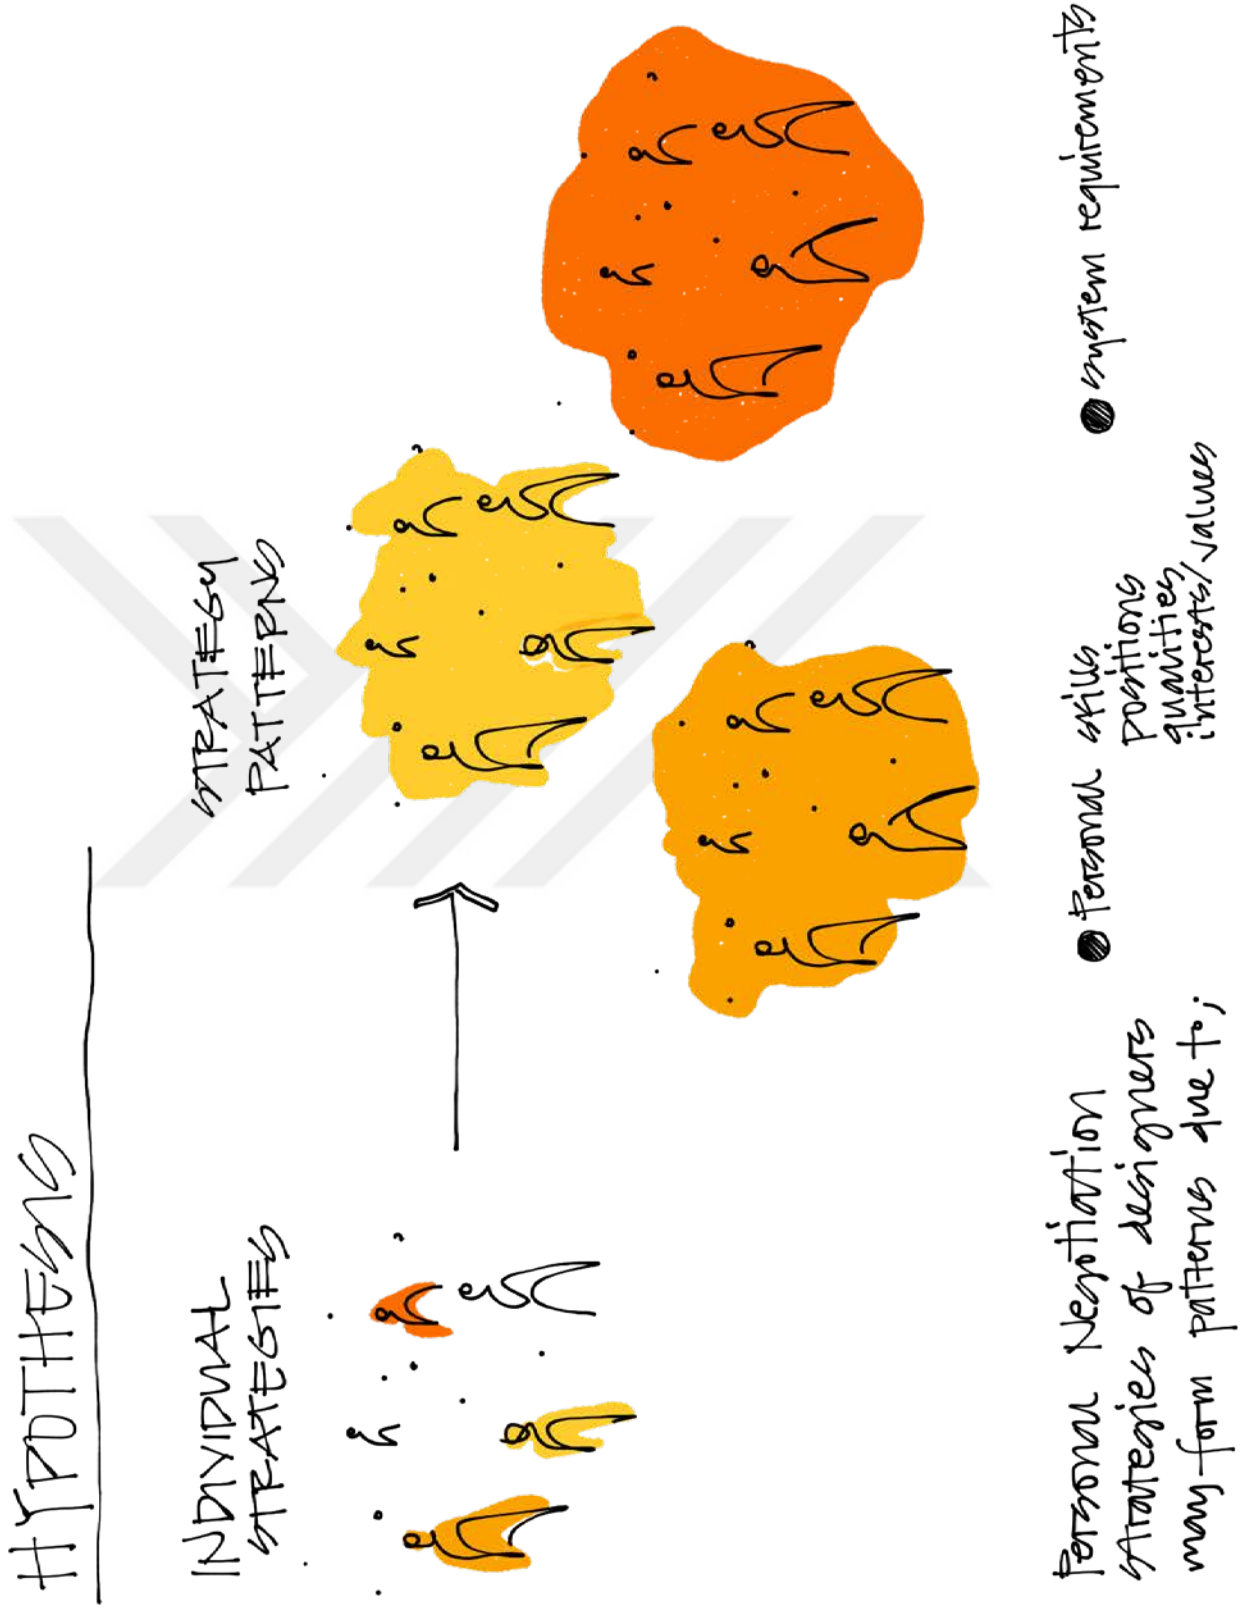 HYPOTHESIS
INDIVIDUAL
STRATEGIES
STRATEGY
PATTERNS
Personal Negotiation
strategies of designers
may form patterns due to;
Personal skills
positions
qualities
interests/values
system requirements